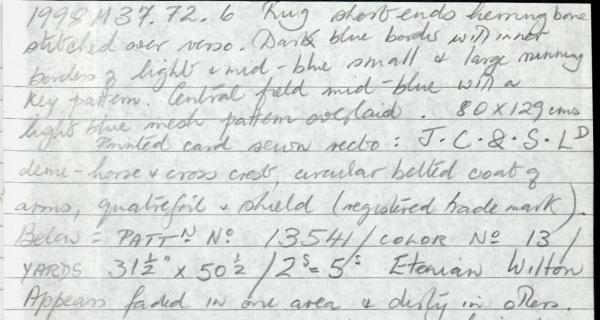 1998 H37.72.6 Rug short ends herringbone
stitched over verso. Dark blue border with inner
borders of light & mid-blue small & large running
key pattern. Central field mid-blue with a
light blue mesh pattern overlaid. 80 X 129 cms
Printed card sewn recto: J.C.&.S.Lᴰ
demi-horse & cross crest, circular belted coat of
arms, quatrefoil & shield (registered trade mark).
Below = PATTᴺ Nº 13541/COLOR Nº 13/
YARDS 31½" x 50½/2ˢ = 5ˢ Etonian Wilton
Appears faded in one area & dirty in others.